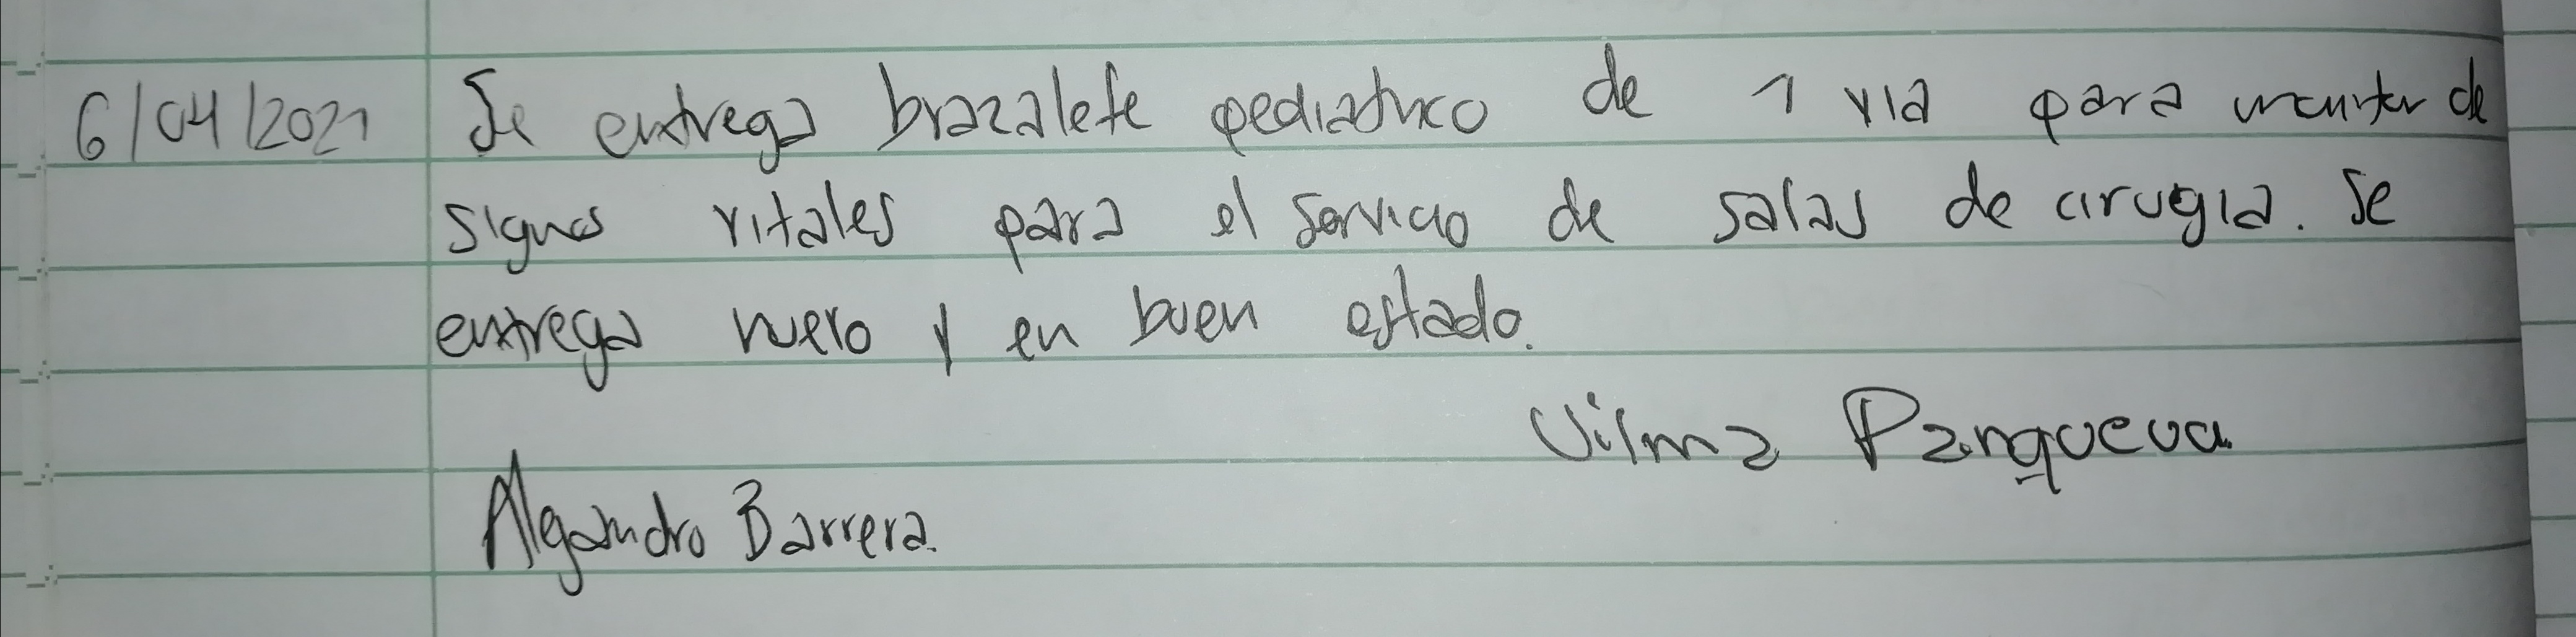 6/04/2021 Se entrega brazalete pediatrico de 1 via para monitor de
signos vitales para el servicio de salas de cirugia. Se
entrega nuevo y en buen estado.
Vilma Panqueva
Alejandro Barrera.